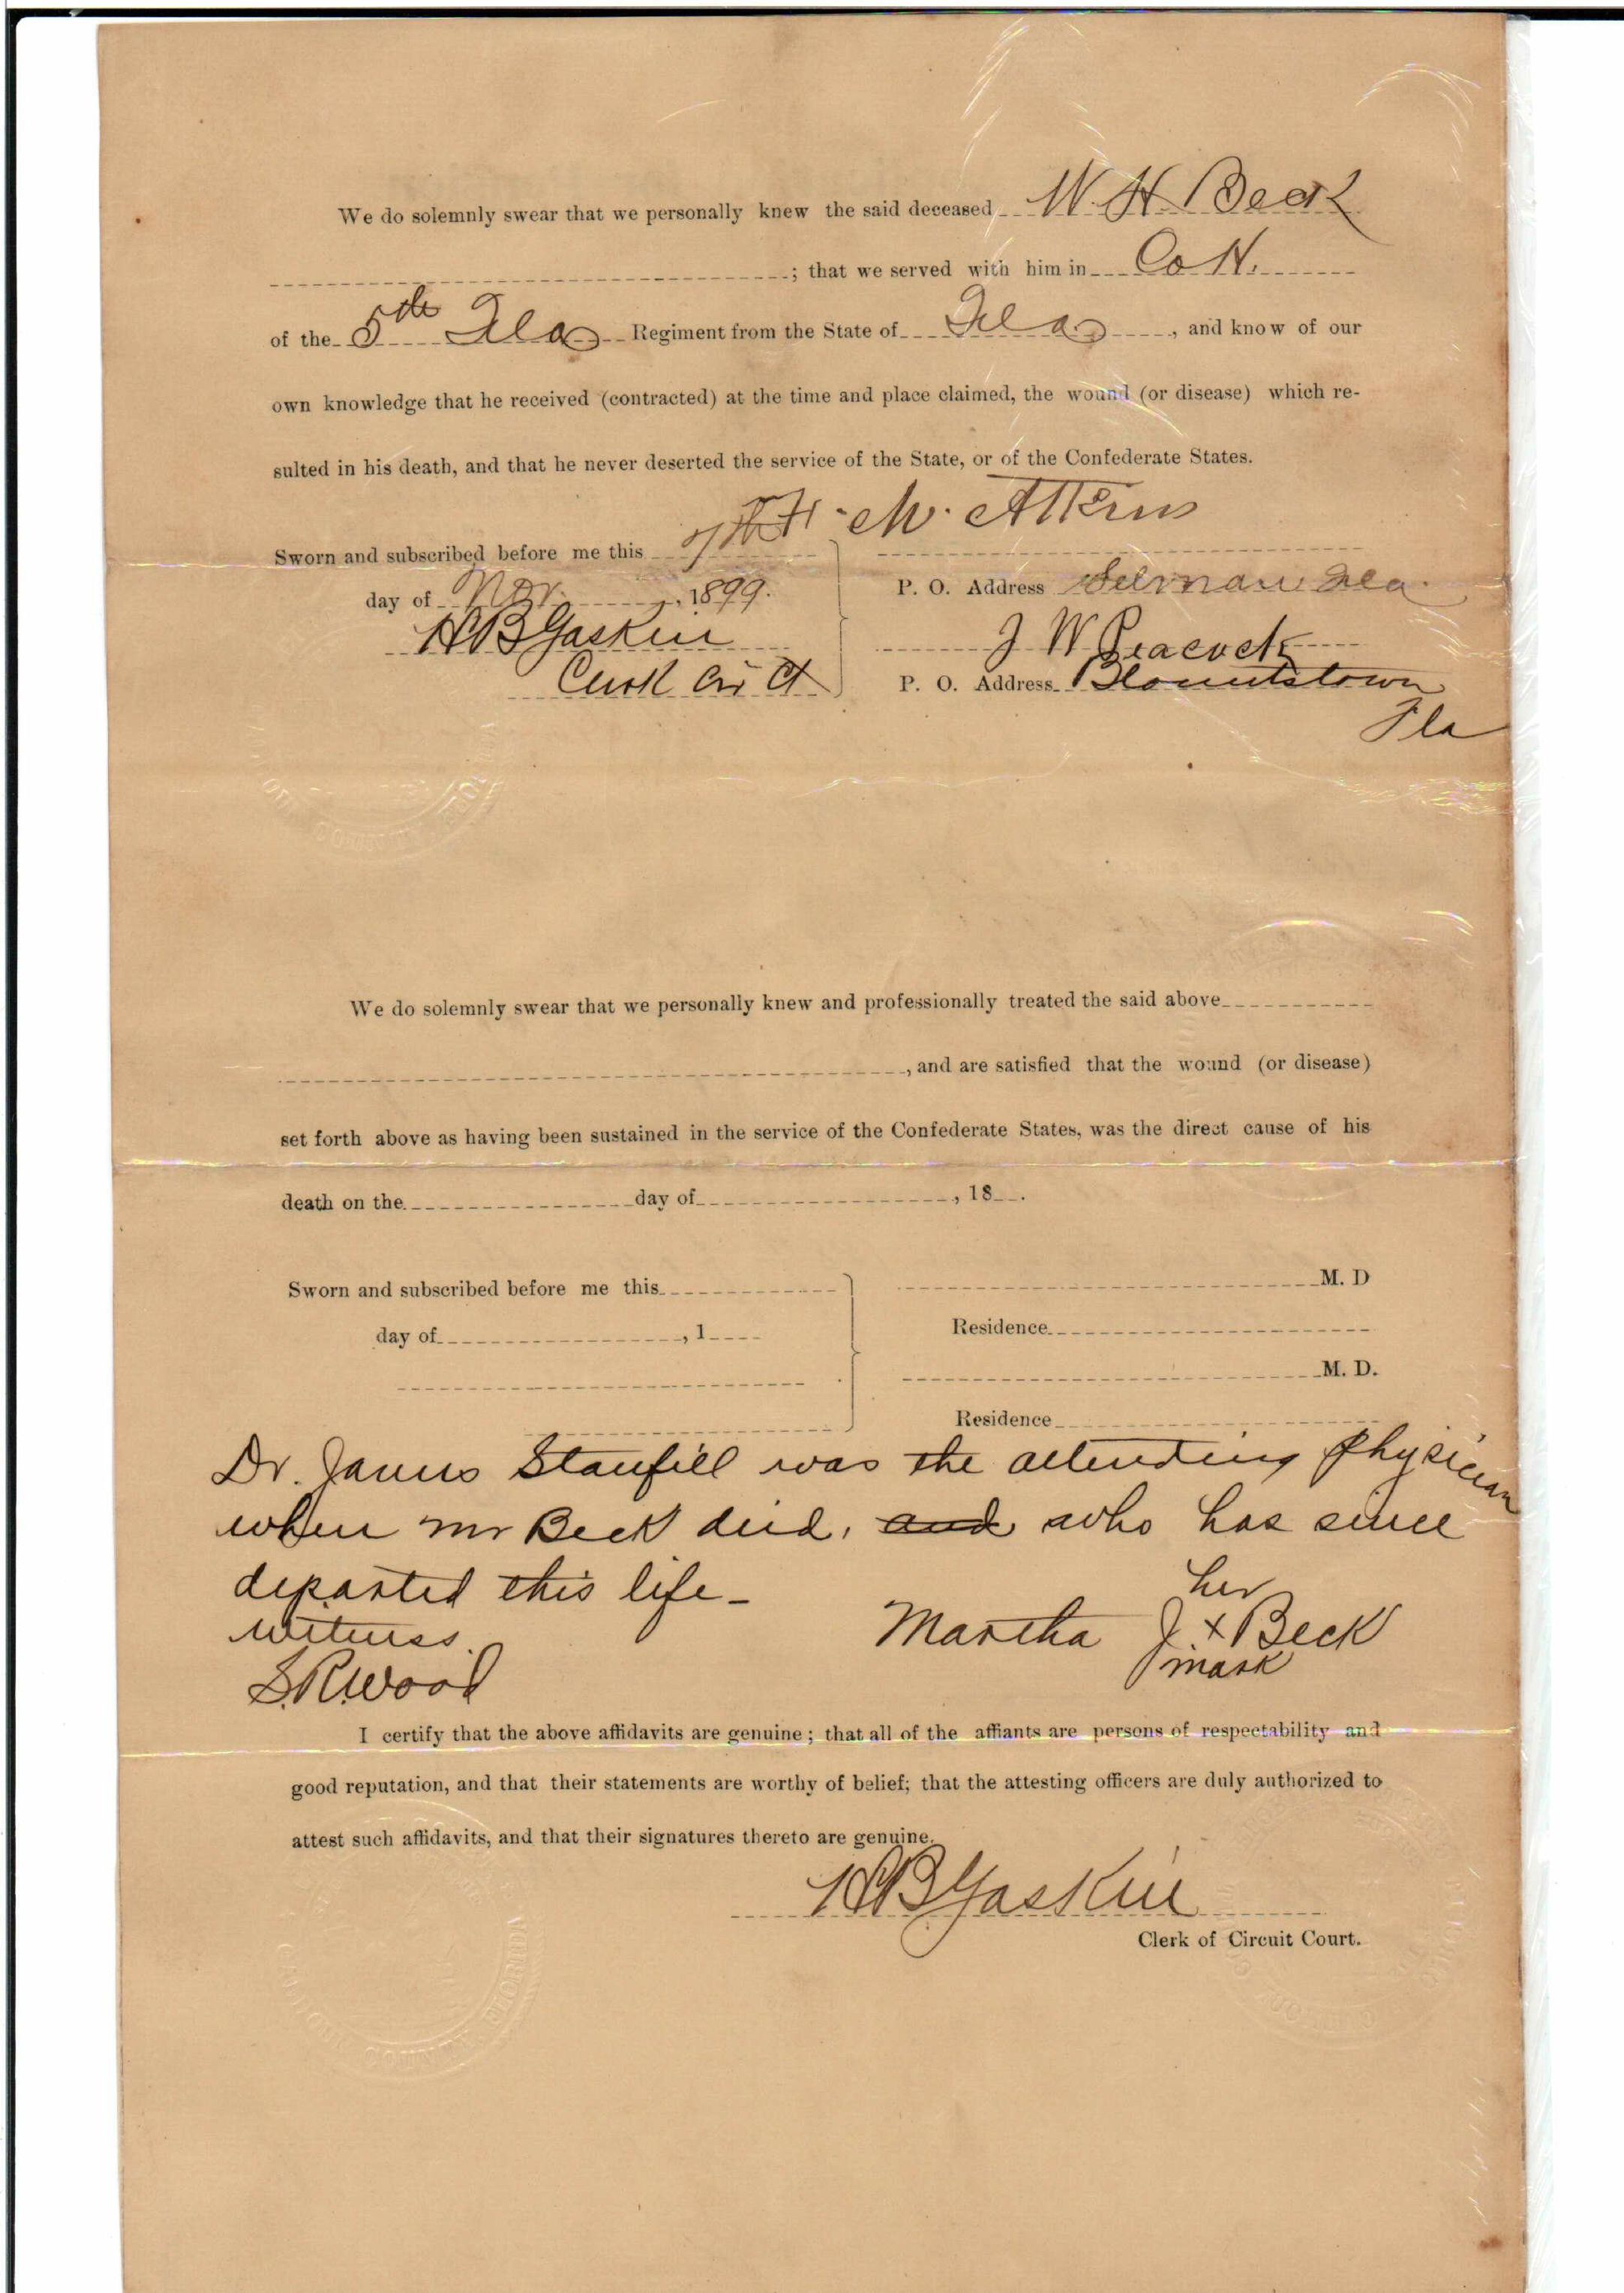 We do solemnly swear that we personally knew the said deceased W. H. Beck
; that we served with him in Co H.
of the 5th Fla Regiment from the State of Fla, and know of our
own knowledge that he received (contracted) at the time and place claimed, the wound (or disease) which re-
sulted in his death, and that he never deserted the service of the State, or of the Confederate States.
M. Atkins
Sworn and subscribed before me this 7th
day of Nov. , 1899.
P. O. Address Selman Fla.
H B Gaskin
J W Peacock
Clerk Cir Ct
P. O. Address Blountstown
Fla
We do solemnly swear that we personally knew and professionally treated the said above
, and are satisfied that the wound (or disease)
set forth above as having been sustained in the service of the Confederate States, was the direct cause of his
death on the day of , 18 .
Sworn and subscribed before me this
M. D
day of , 1
Residence
M. D.
Residence
Dr. James Stanfill was the attending physician
when Mr Beck died, and who has since
departed this life -
witness.
her
Martha J. x Beck
mark
S. R. Wood
I certify that the above affidavits are genuine; that all of the affiants are persons of respectability and
good reputation, and that their statements are worthy of belief; that the attesting officers are duly authorized to
attest such affidavits, and that their signatures thereto are genuine.
H B Gaskin
Clerk of Circuit Court.